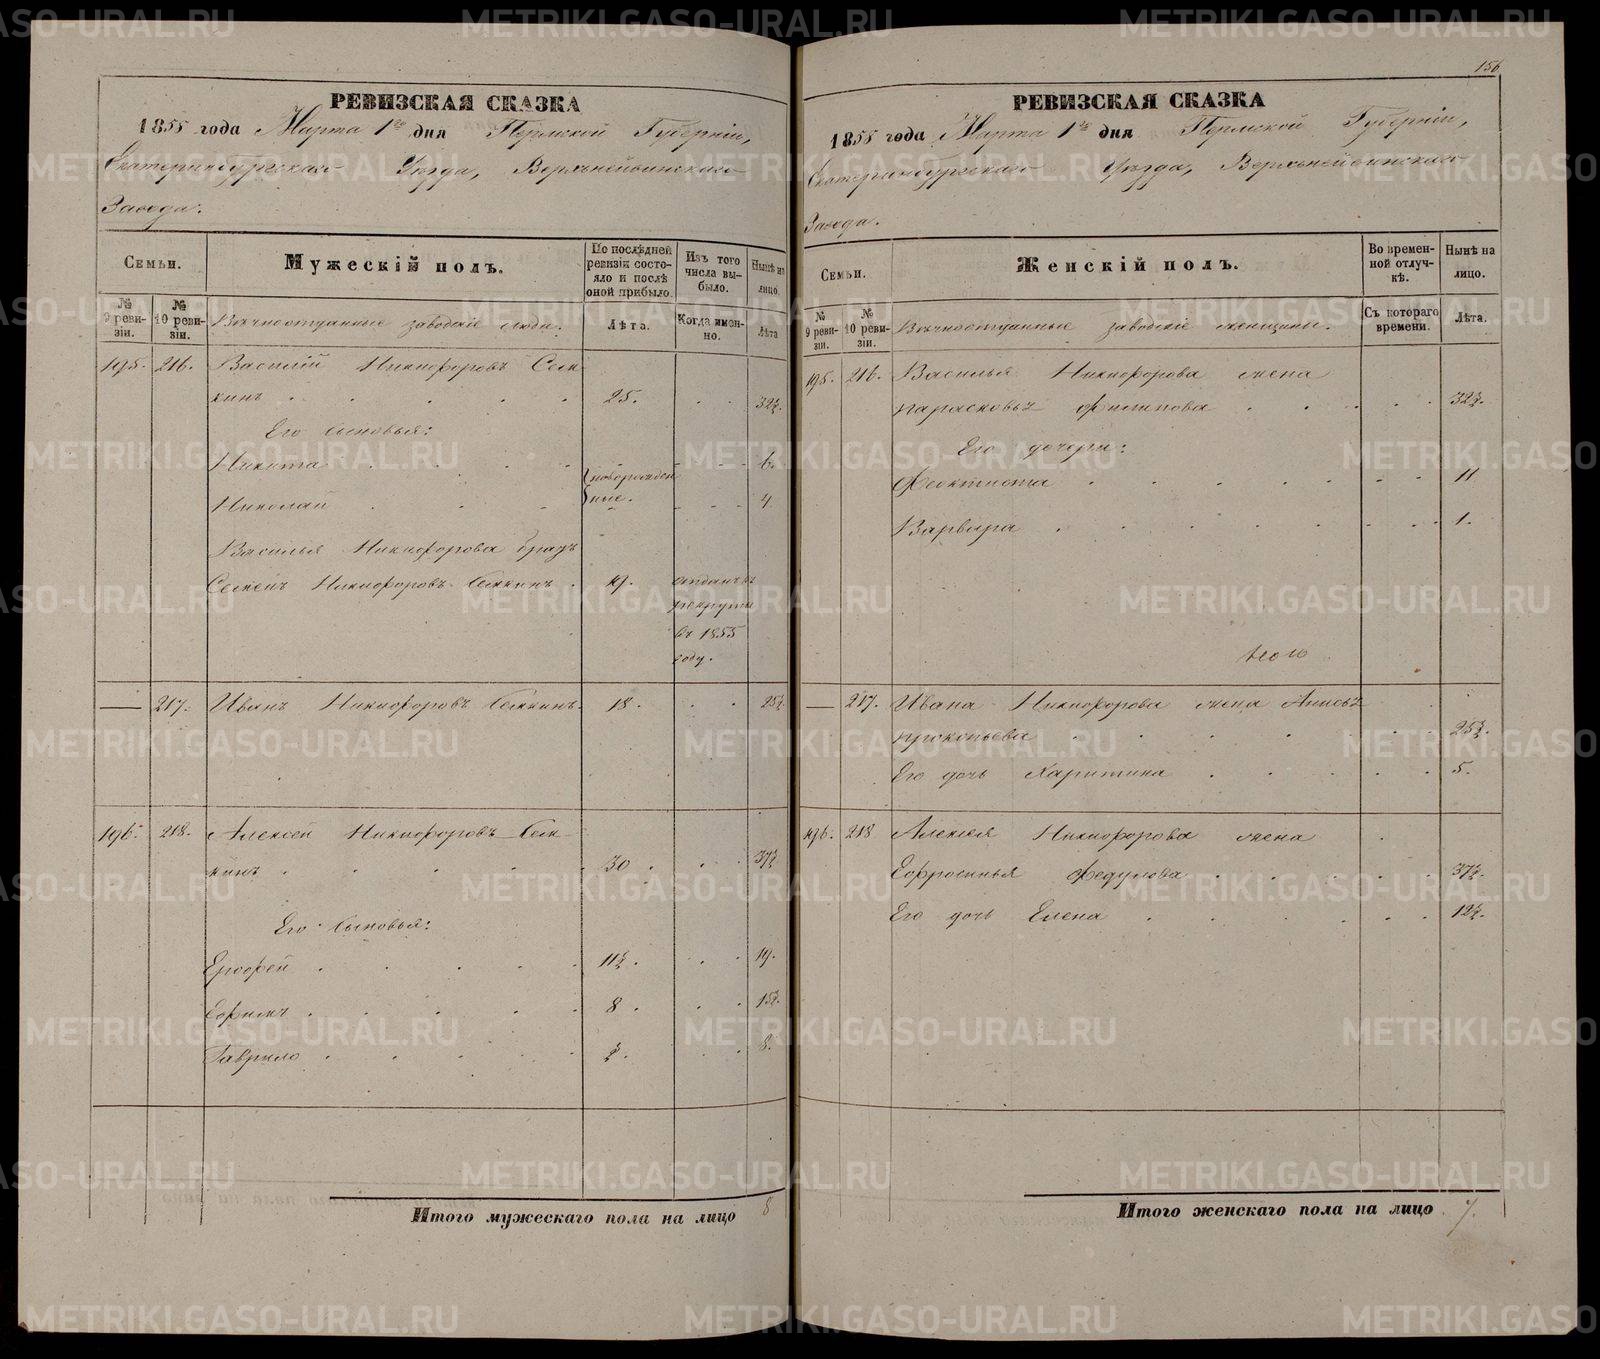 156
РЕВИЗСКАЯ СКАЗКА
1855 года Марта 1го дня Пермской Губерніи,
Екатеринбургскаго Уѣзда, Верхънейвинскаго
Завода.
Семьи.
Мужескій полъ.
По послѣдней ревизіи состояло и послѣ оной прибыло.
Изъ того числа выбыло.
Нынѣ на лицо.
№ 9 ревизіи.
№ 10 ревизіи.
Вѣчноотданные заводскіе люди.
Лѣта.
Когда именно.
Лѣта
195. 216. Василій Никифоровъ
кинъ 25. 32½.
Его сыновья:
Никита 6.
новорожден
ные.
Николай 4
Василья Никифорова братъ
Семенъ Никифоровъ 19. отданъ въ
рекруты
въ 1855
году.
217. Иванъ Никифоровъ 18. 25½
196. 218. Алексей Никифоровъ
кинъ 30 37½
Его сыновья:
Ерофей 11½ 19.
Ефимъ 8 15½.
Гаврило ½. 8.
Итого мужескаго пола на лицо 8
РЕВИЗСКАЯ СКАЗКА
1855 года Марта 1го дня Пермской Губерніи,
Екатеринбургскаго Уѣзда, Верхънейвинскаго
Завода.
Семьи.
Женскій полъ.
Во временной отлучкѣ.
Нынѣ на лицо.
№ 9 ревизіи.
№ 10 ревизіи.
Вѣчноотданные заводскіе женщины.
Съ котораго времени.
Лѣта.
195. 216. Василья Никифорова жена
Парасковья Филипова 32½.
Его дочери:
Феоктиста 11
Варвара 1.
217. Ивана Никифорова жена Анисья
Прокопьева 25½.
Его дочь Харитина 5.
196. 218 Алексея Никифорова жена
Ефросинья Федулова 37½.
Его дочь Елена 12½.
Итого женскаго пола на лицо 7.
METRIKI.GASO-URAL.RU